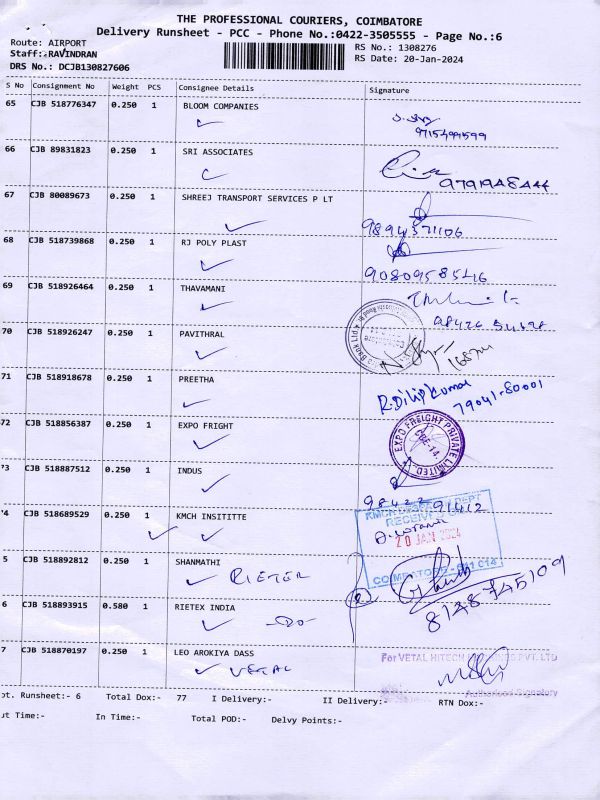 THE PROFESSIONAL COURIERS, COIMBATORE
Delivery Runsheet - PCC - Phone No.:0422-3505555 - Page No.:6
Route: AIRPORT
RS No.: 1308276
Staff:-RAVINDRAN
RS Date: 20-Jan-2024
DRS No.: DCJB130827606
S No Consignment No Weight PCS Consignee Details Signature
65 CJB 518776347 0.250 1 BLOOM COMPANIES
66 CJB 89831823 0.250 1 SRI ASSOCIATES
67 CJB 80089673 0.250 1 SHREEJ TRANSPORT SERVICES P LT
9894371106
68 CJB 518739868 0.250 1 RJ POLY PLAST
69 CJB 518926464 0.250 1 THAVAMANI
70 CJB 518926247 0.250 1 PAVITHRAL
71 CJB 518918678 0.250 1 PREETHA
R.Dilip Kumar
79041-80001
72 CJB 518856387 0.250 1 EXPO FRIGHT
EXPO FREIGHT PRIVATE LIMITED
CBE-14.
73 CJB 518887512 0.250 1 INDUS
98422 91412
74 CJB 518689529 0.250 1 KMCH INSITITTE
RECEIVED
20 JAN 2024
COIMBATORE - 641 014
5 CJB 518892812 0.250 1 SHANMATHI
RIETER
8148745109
6 CJB 518893915 0.580 1 RIETEX INDIA
-DO-
7 CJB 518870197 0.250 1 LEO AROKIYA DASS
VETAL
For VETAL HITECH PVT. LTD
Authorised Signatory
ot. Runsheet:- 6 Total Dox:- 77 I Delivery:- II Delivery:- RTN Dox:-
ut Time:- In Time:- Total POD:- Delvy Points:-